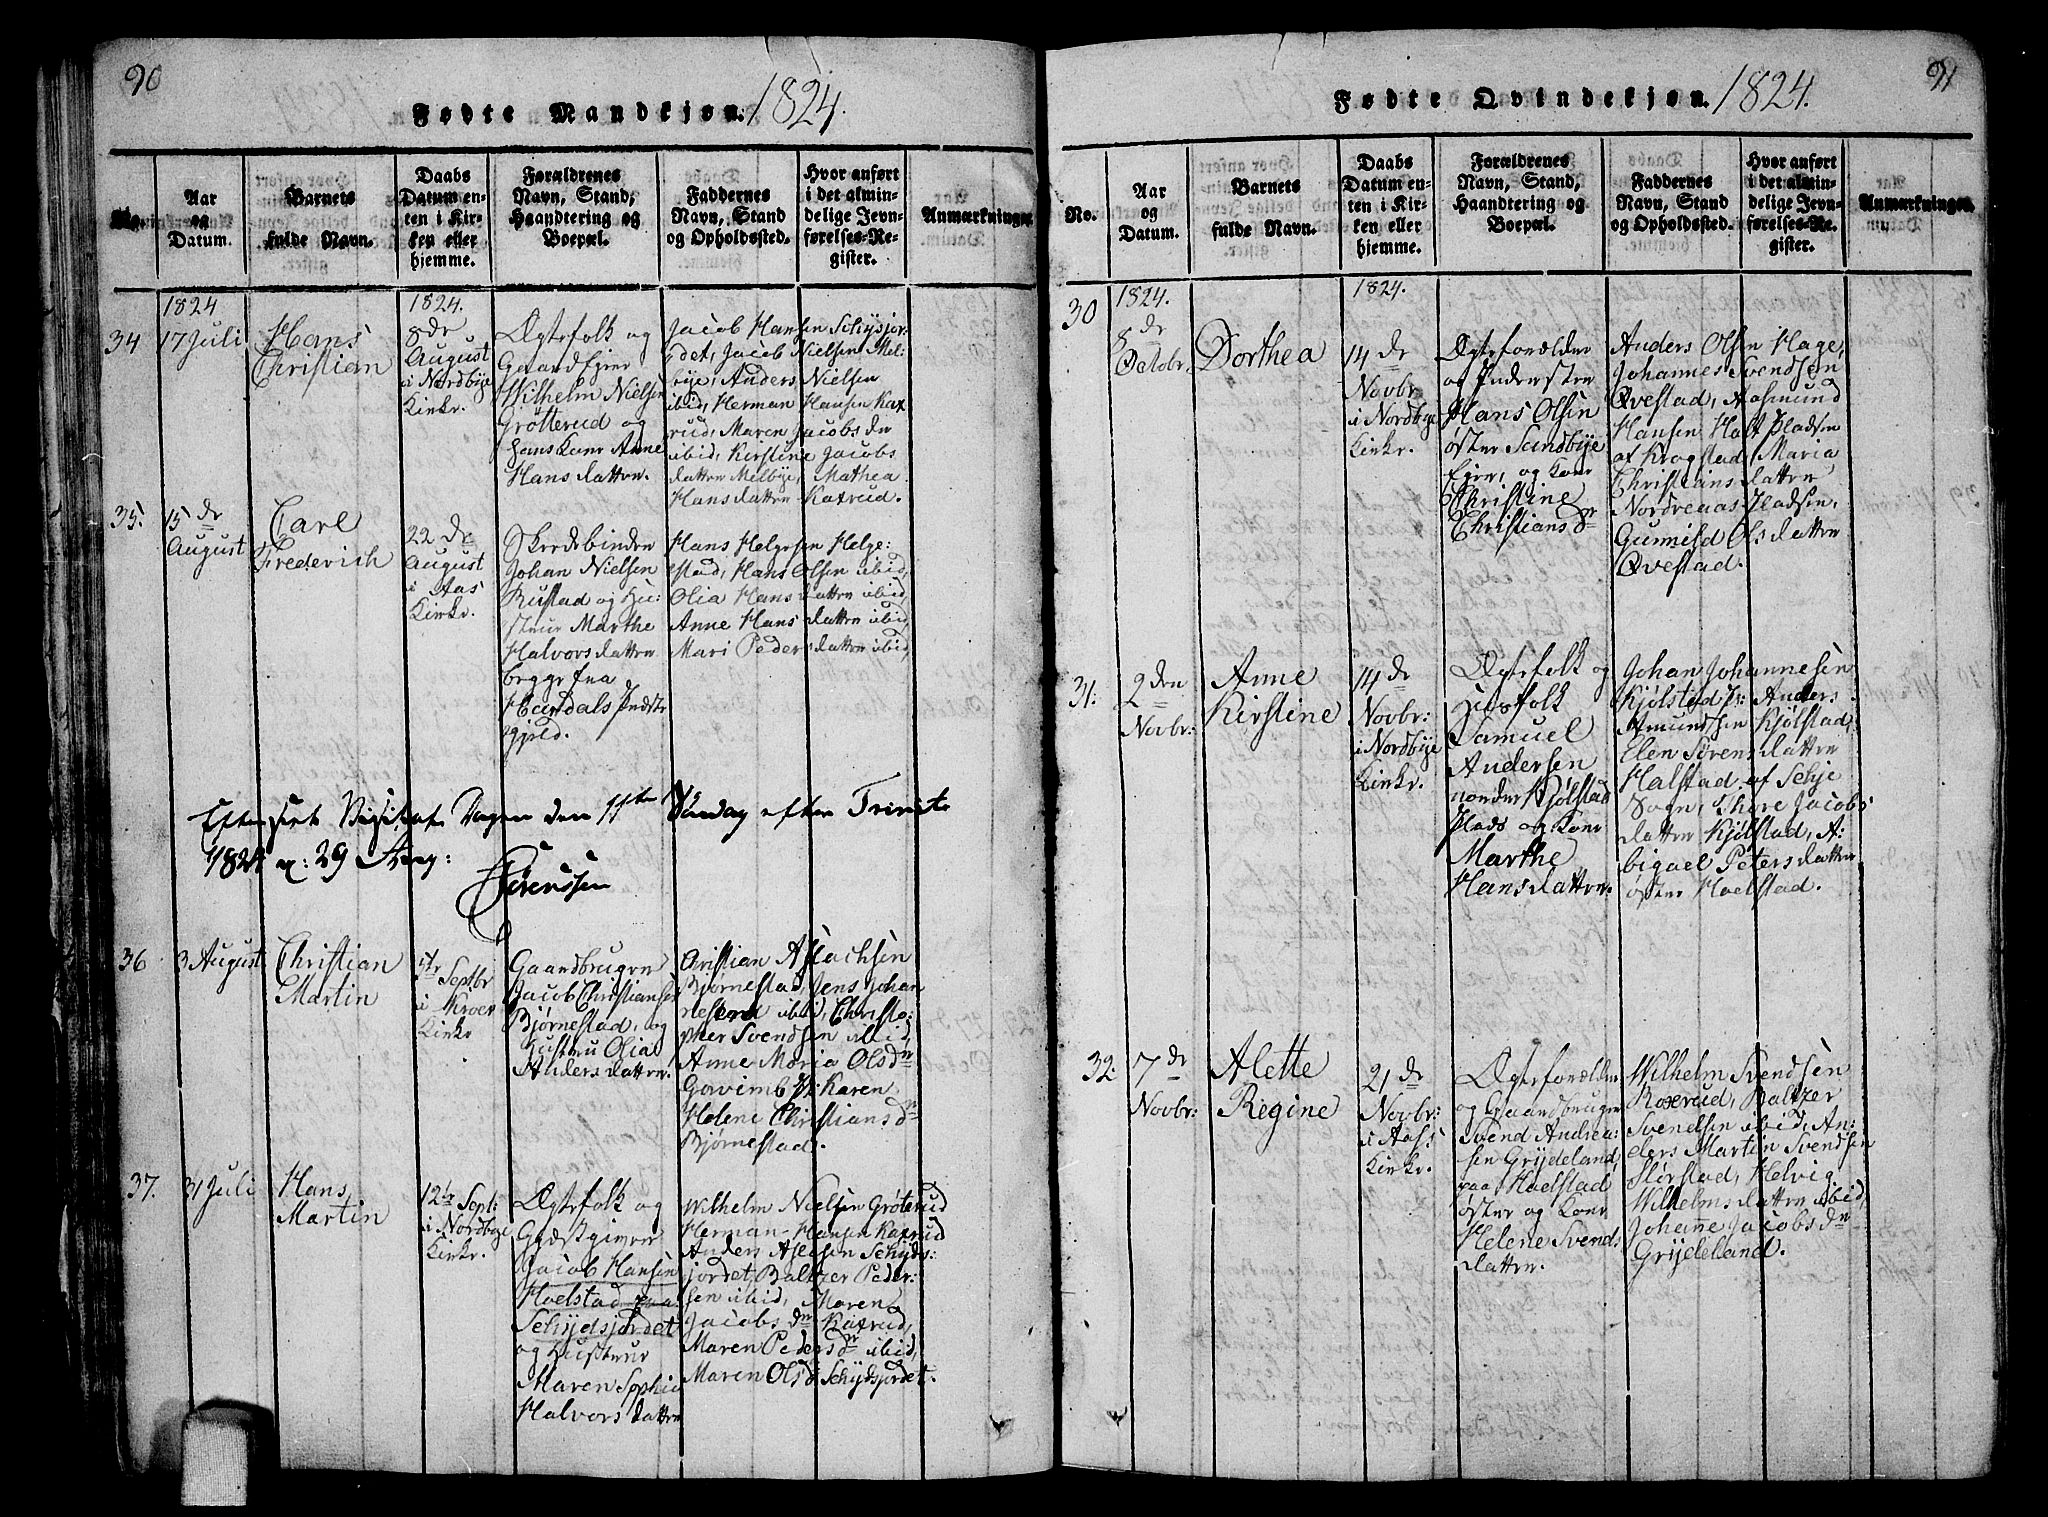 90
Fødte Mandkjøn. 1824.
No.
Aar og Datum.
Barnets fulde Navn.
Daabs Datum enten i Kirken eller hjemme.
Forældrenes Navn, Stand, Haandtering og Boepæl.
Faddernes Navn, Stand og Opholdssted.
Hvor anført i det almindelige Jevnførelses-Register.
Anmærkninger.
34
1824
17 Juli
Hans
Christian
1824.
8de
August
i Nordbye
Kirke.
Ægtefolk og
Gaardejer
Wilhelm Nielsen
Grøtterud og
hans Kone Anne
Hansdatter.
Jacob Hansen Schysjor:
det, Jacob Nielsen Mel:
bye, Anders Nielsen
ibid, Herman Hansen Kax
rud, Maren Jacobs de
ibid, Kirstine Jacobs
datter Melbye, Mathea
Hansdatter Kaxrud.
35.
15 de
August
Carl
Frederich
22 de
August
i Aas
Kirke.
Johan Nielsen
Rustad og Hu:
strue Marthe
Halvorsdatter
begge fra
Hans Helgesen Helge:
stad, Hans Olsen ibid,
Olia Hansdatter ibid,
Anne Hansdatter ibid,
Mari Pedersdatter ibid,
Efterseet Visitats Dagen den 11te Søndag efter Trinit:
1824 29 Aug:
Sørenssen
36
3 August
Christian
Martin
Septbr
i Kroer
Kirke
Gaardbruger
Jacob Christiansen
Bjørnestad, og
Hustru Olia
Andersdatter.
Christian Aslachsen
Bjørnestad, Jens Johan
nesen ibid, Christo:
pher Svendsen ibid,
Anne Maria Olsdr
Karen
Helene Christiansdr
Bjørnestad.
37.
31 Juli
Hans
Martin
12te Sept:
i Nordbye
Kirke.
Ægtefolk og
Gjæstgiver
Jacob Hansen
Hoelstad paa
Schydsjordet
og Hustrue
Maren Sophie
Halvorsdatter
Wilhelm Nielsen Grøterud
Herman Hansen Kaxrud
Anders Schyds:
jordet, Baltzer Peder:
sen ibid, Maren
Jacobs dr Kaxrud,
Maren Pedersdr ibid,
Maren Olsd Schydsjordet.
91
Fødte Qvindekjøn. 1824.
No.
Aar og Datum.
Barnets fulde Navn.
Daabs Datum enten i Kirken eller hjemme.
Forældrenes Navn, Stand, Haandtering og Boepæl.
Faddernes Navn, Stand og Opholdssted.
Hvor anført i det almindelige Jevnførelses-Register.
Anmærkninger.
30
1824.
8 de
Octobr.
Dorthea
1824.
14 de
Novbr
i Nordbye
Kirke.
Ægteforældre
og Inderster
Hans Olsen
øster Sundbye
Eger, og Kone
Christine
Christiansdr
Anders Olsen Hage,
Johannes Svendsen
Qvestad, Aasmund
Hansen Holt Pladsen
af Krogstad Maria
Christiansdatter
Nordreaas-Pladsen,
Gunnild Olsdatter
Qvestad.
31:
2den
Novbr:
Anne
Kirstine
14 de
Novbr:
i Nordbye
Kirke.
Ægtefolk og
Huusfolk
Samuel
Andersen
norder Kjølstad
Plads og Kone
Marthe
Hansdatter.
Johan Johannesen
Kjølstad Anders
Amundsen Kjølstad,
Elen Sørensdatter
Halstad af Schie
Sogn, Thore Jacobs
datter Kjølstad, A:
bigael Petersdatter
øster Hoelstad.
32:
7 de
Novbr:
Alette
Regine
21 de
Novbr:
i Aass
Kirke.
Ægteforældre
og Gaardbruger
Svend Andrea:
sen Grydeland
paa Hoelstad
øster og Kone
Helene Svends
datter.
Wilhelm Svendsen
Roserud, Baltzer
Svendsen ibid, An:
ders Martin Svendsen
Størstad, Helvig
Wilhelmsdatter ibid,
Johanne Jacobs dr
Grydeland.